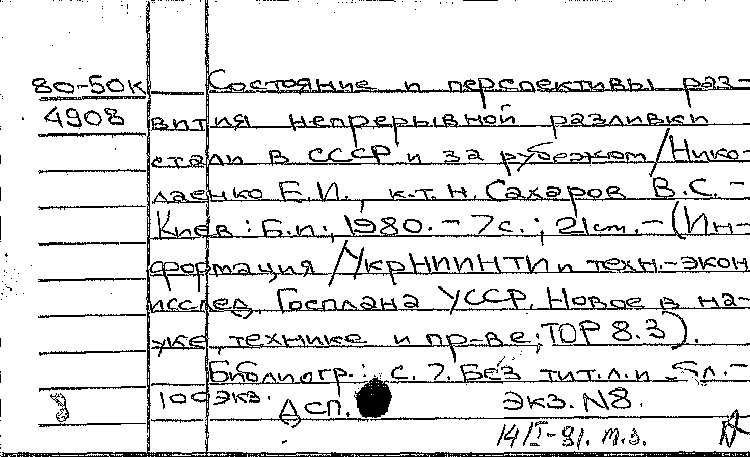 80-50к Состояние и перспективы раз-
4908 вития непрерывной разливки
стали в СССР и за рубежом / Нико-
лаенко Е.И., к.т.н. Сахаров В.С. -
Киев : Б.и., 1980. - 7 с. ; 21 cm. - (Ин-
формация / УкрНИИНТИ и техн.-экон
исслед. Госплана УССР. Новое в на-
уке, технике и пр-ве; ТОР 8.3).
Библиогр.: с. 7. Без тит. л. и бл. -
100 экз.
ДСП. Экз. N8.
14/I-81. м.з.